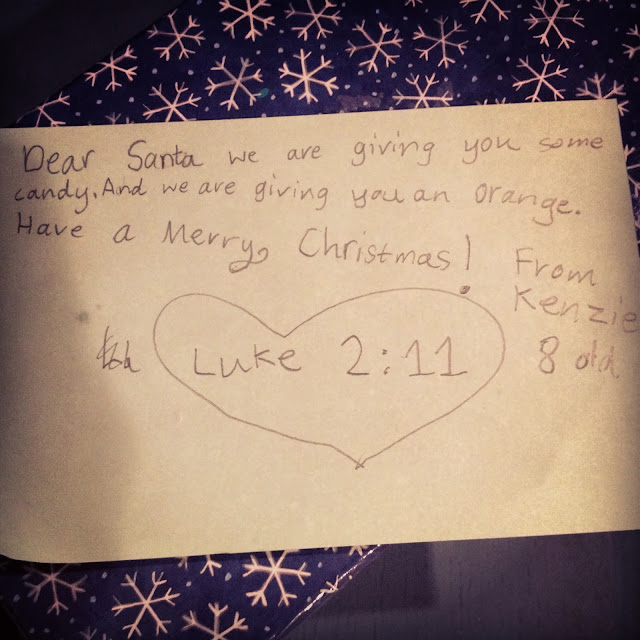 Dear Santa we are giving you some
candy. And we are giving you an orange.
Have a Merry Christmas!
From
Kenzie
Luke 2:11
8 old